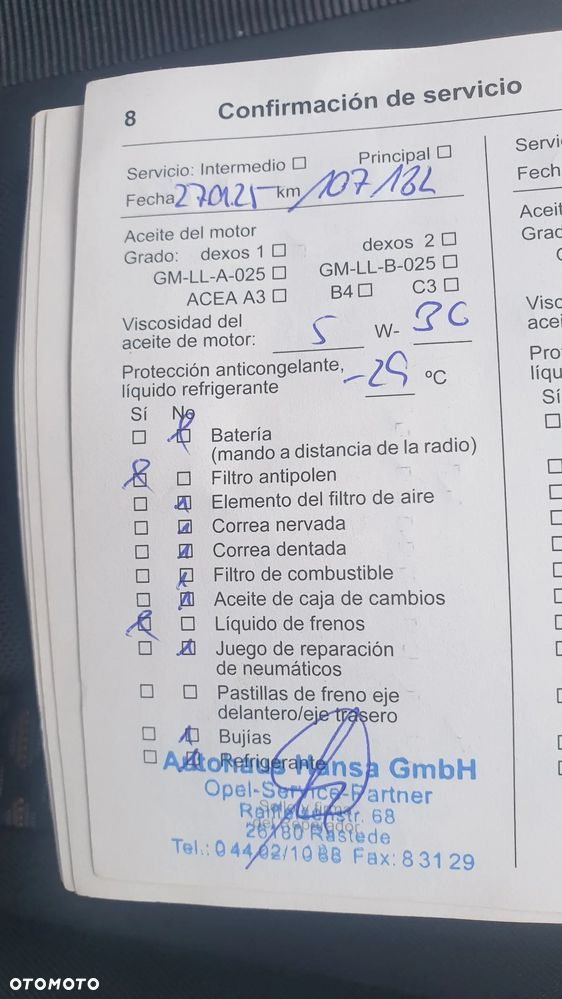 8 Confirmación de servicio
Servicio: Intermedio ☐ Principal ☐
Fecha 27.01.25 km 107182
Aceite del motor
Grado: dexos 1 ☐ dexos 2 ☐
GM-LL-A-025 ☐ GM-LL-B-025 ☐
ACEA A3 ☐ B4 ☐ C3 ☐
Viscosidad del
aceite de motor: 5 W- 30
Protección anticongelante,
líquido refrigerante -29 ºC
Sí No
☐ ☒ Batería
(mando a distancia de la radio)
☒ ☐ Filtro antipolen
☐ ☒ Elemento del filtro de aire
☐ ☒ Correa nervada
☐ ☒ Correa dentada
☐ ☒ Filtro de combustible
☐ ☒ Aceite de caja de cambios
☒ ☐ Líquido de frenos
☐ ☒ Juego de reparación
de neumáticos
☐ ☐ Pastillas de freno eje
delantero/eje trasero
☐ ☒ Bujías
☐ ☒ Refrigerante
Autohaus Hansa GmbH
Opel-Service-Partner
Sello y firma
Raiffeisenstr. 68
26180 Rastede
Tel.: 0 44 02/10 88 Fax: 8 31 29
Servi
Fech
Aceit
Grad
Visc
acei
Pro
líqu
Sí
OTOMOTO